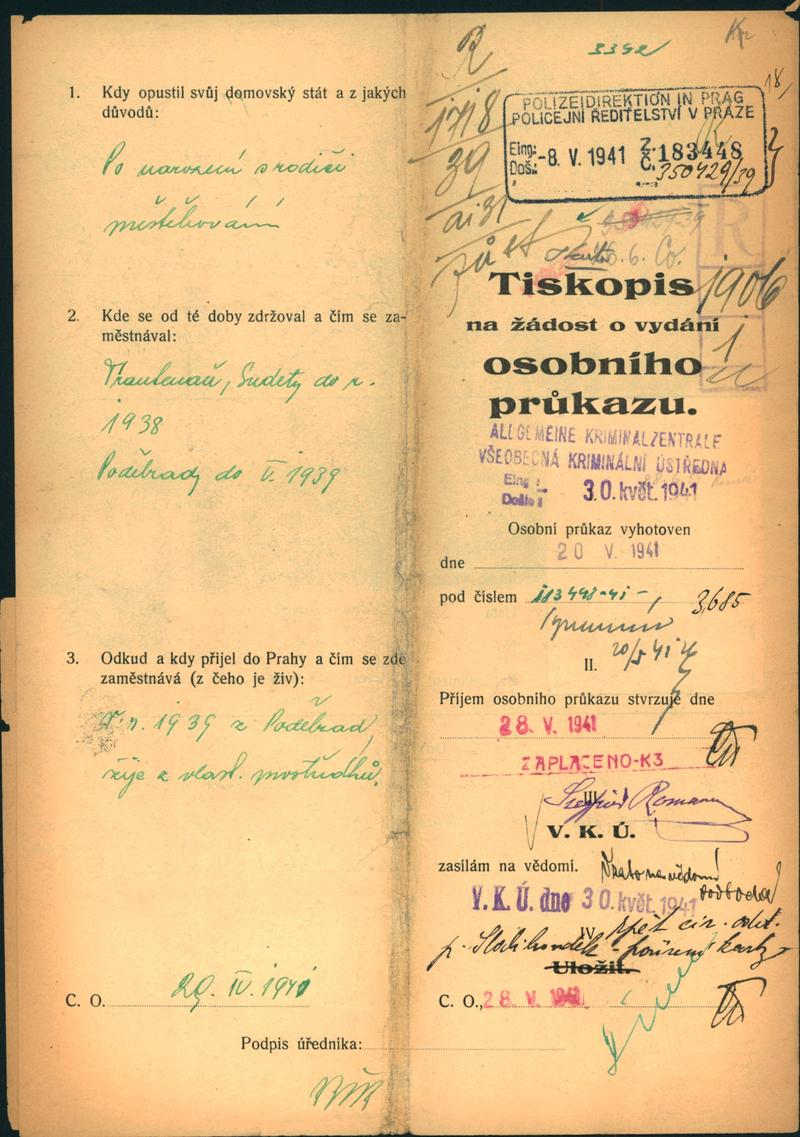 1. Kdy opustil svůj domovský stát a z jakých
důvodů:
Po narození s rodiči
2. Kde se od té doby zdržoval a čím se za-
městnával:
Trautenau, Sudety do r.
1938
Poděbrady do V. 1939
3. Odkud a kdy přijel do Prahy a čím se zde
zaměstnává (z čeho je živ):
V. r. 1939 z Poděbrad,
žije z vlast. prostředků.
C. O. 29. IV. 1941
Podpis úředníka:
3392
R
1718
39
18,
POLIZEIDIREKTION IN PRAG
POLICEJNÍ ŘEDITELSTVÍ V PRAZE
Eing.: Doš.: -8. V. 1941 Z. Č. 183448
350429/39
R
Tiskopis
1906
na žádost o vydání
1
osobního
průkazu.
ALLGEMEINE KRIMINALZENTRALE
VŠEOBECNÁ KRIMINÁLNÍ ÚSTŘEDNA
Eing.: Došlo: 30. květ. 1941
Osobní průkaz vyhotoven
dne 20 V. 1941
pod číslem 183448-41- 3685
20/5 41
II.
Příjem osobního průkazu stvrzuje dne
28. V. 1941
ZAPLACENO-K3
III.
V. K. Ú.
zasílám na vědomí.
Vzato na vědomí
V. K. Ú. dne 30. květ. 1941
IV.
zpět
Uložit.
C. O., 28. V. 1941